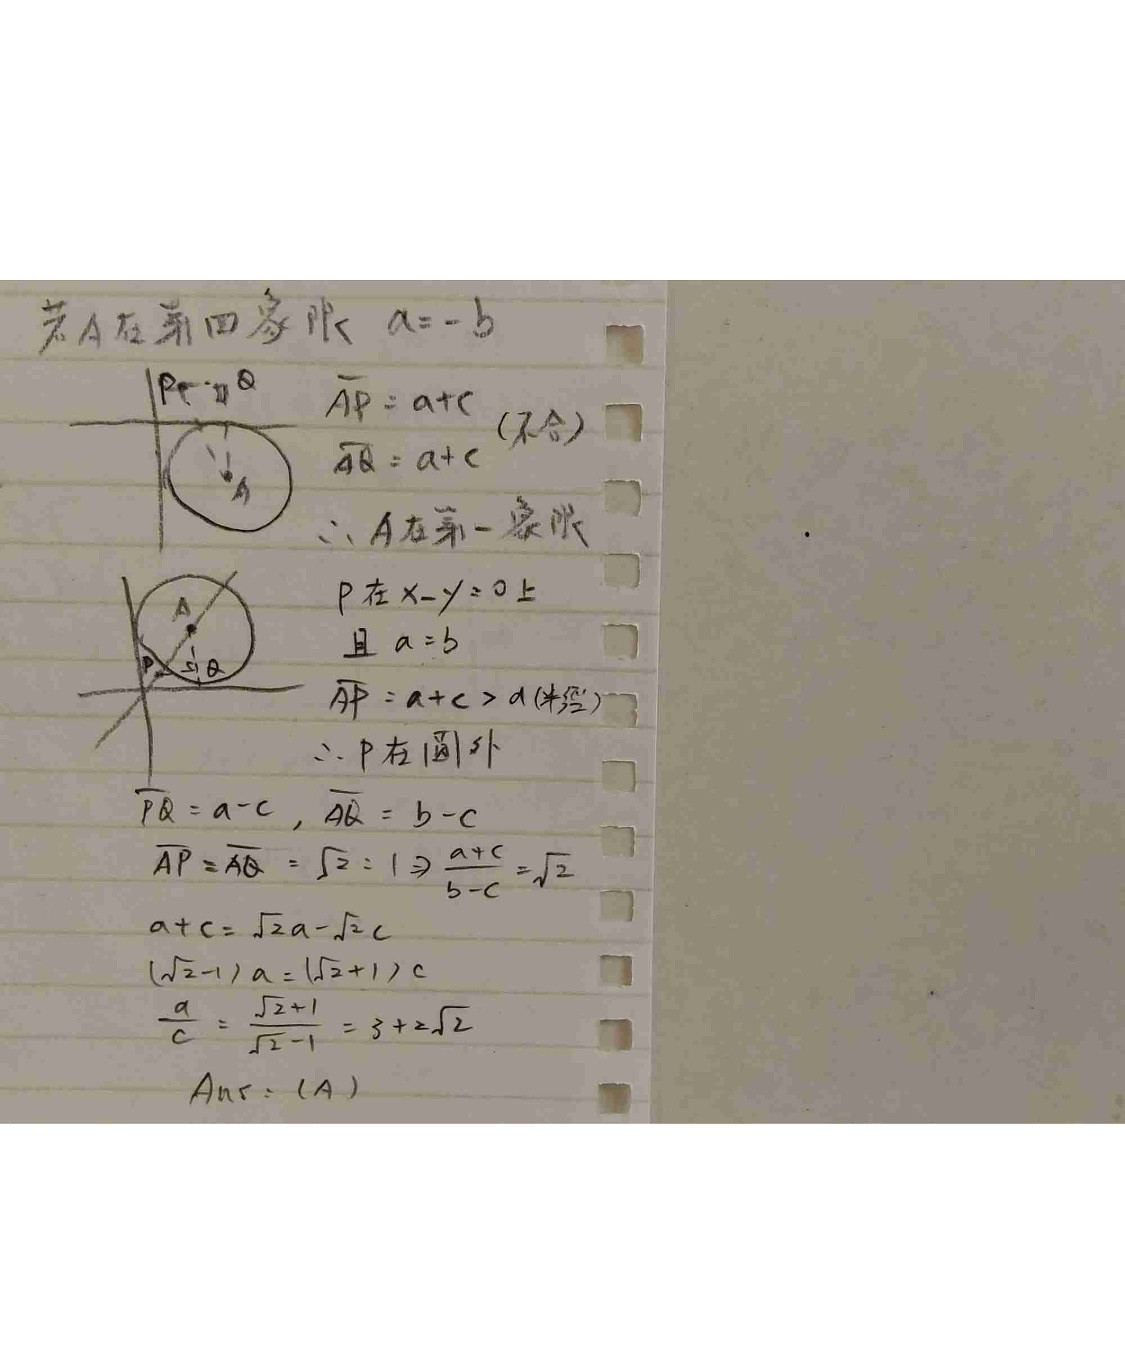 若A在第四象限 a=-b
P Q
A
AP = a+c
(不合)
AQ = a+c
∴ A在第一象限
A
P Q
P在 x-y=0上
且 a=b
AP = a+c > a (半徑)
∴ P在圓外
PQ = a-c , AQ = b-c
AP = AQ = √2 : 1 ⇒ a+c/b-c = √2
a+c = √2a - √2c
(√2-1) a = (√2+1) c
a/c = √2+1/√2-1 = 3+2√2
Ans: (A)